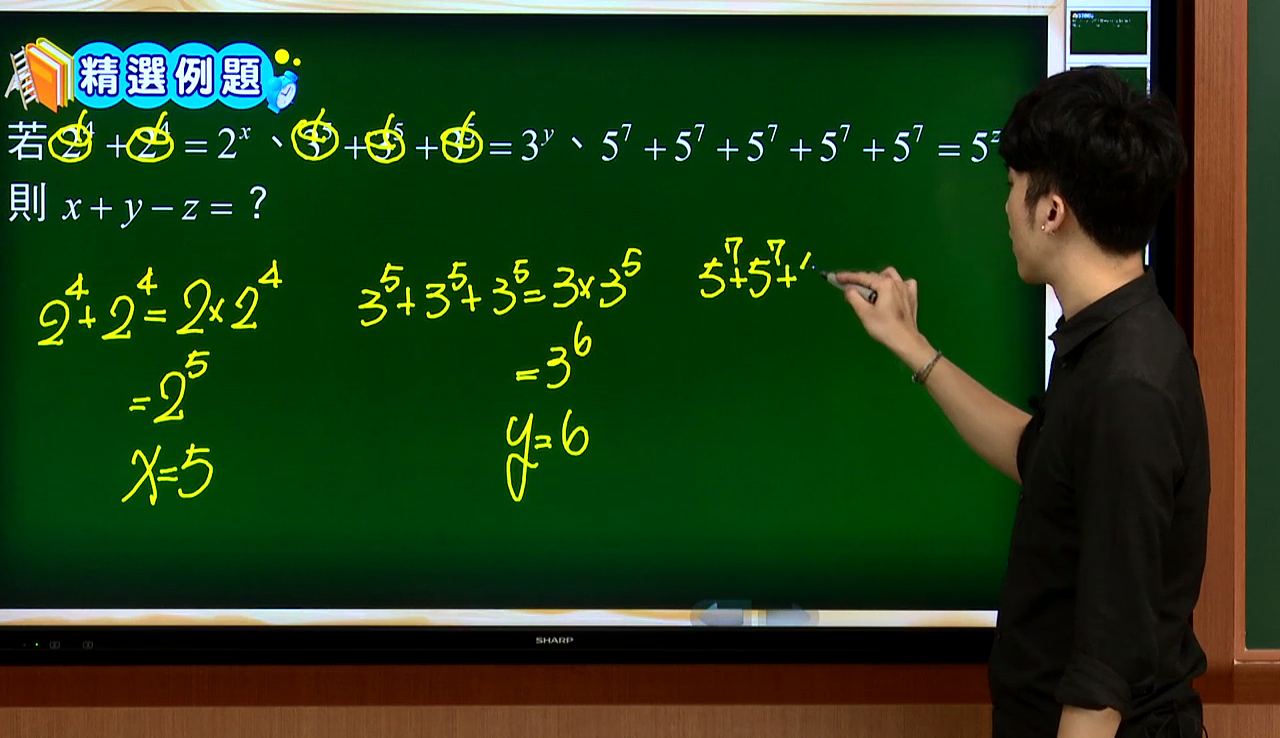 精選例題
若 2⁴ + 2⁴ = 2ˣ、3⁵ + 3⁵ + 3⁵ = 3ʸ、5⁷ + 5⁷ + 5⁷ + 5⁷ + 5⁷ = 5ᶻ
則 x + y − z = ?
2⁴+2⁴=2×2⁴
=2⁵
x=5
3⁵+3⁵+3⁵=3×3⁵
=3⁶
y=6
5⁷+5⁷+
SHARP